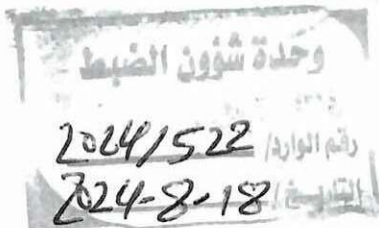 وحدة شؤون الضبط
رقم الوارد/ 2024/522
التاريخ/ 2024-8-18